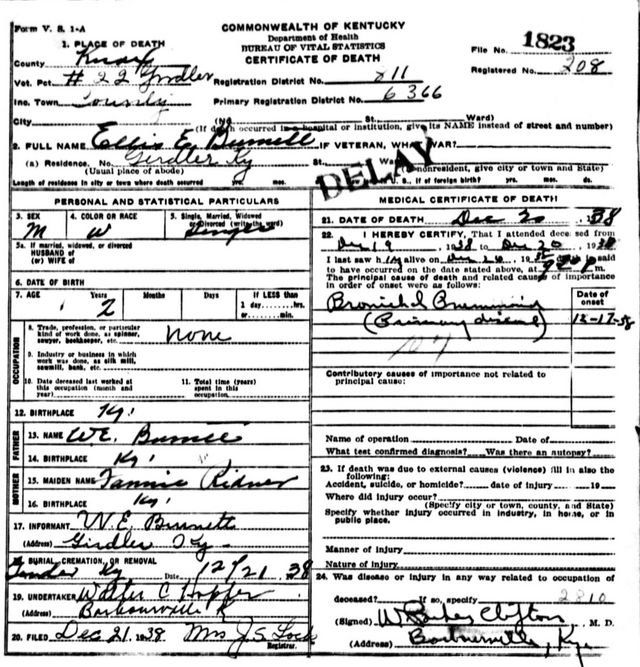 Form V. S. 1-A
COMMONWEALTH OF KENTUCKY
Department of Health
BUREAU OF VITAL STATISTICS
CERTIFICATE OF DEATH
File No. 1823
Registered No. 208
1. PLACE OF DEATH
County Knox
Vot. Pct. #22 Girdler Registration District No. 811
Inc. Town County Primary Registration District No. 6366
City (No. St. Ward)
(If death occurred in a hospital or institution, give its NAME instead of street and number)
2. FULL NAME Ellis E. Burnett IF VETERAN, WHAT WAR?
(a) Residence. No. Girdler Ky St. Ward
(Usual place of abode) (If nonresident, give city or town and State)
Length of residence in city or town where death occurred yrs. mos. ds. U. S., if of foreign birth? yrs. mos. ds.
DELAY
PERSONAL AND STATISTICAL PARTICULARS
3. SEX 4. COLOR OR RACE 5. Single, Married, Widowed
or Divorced (write the word)
M W Single
5a. If married, widowed, or divorced
HUSBAND of
(or) WIFE of
6. DATE OF BIRTH
7. AGE Years Months Days If LESS than
1 day, hrs.
or min.
2
OCCUPATION
8. Trade, profession, or particular
kind of work done, as spinner,
sawyer, bookkeeper, etc. none
9. Industry or business in which
work was done, as silk mill,
sawmill, bank, etc.
10. Date deceased last worked at
this occupation (month and
year)
11. Total time (years)
spent in this
occupation
12. BIRTHPLACE Ky.
FATHER
13. NAME W.E. Burnett
14. BIRTHPLACE Ky.
MOTHER
15. MAIDEN NAME Fannie Ridner
16. BIRTHPLACE Ky.
17. INFORMANT W. E. Burnett
(Address) Girdler Ky
18. BURIAL, CREMATION, OR REMOVAL
Ky Date 12/21 38
19. UNDERTAKER Walter C Hopper
(Address) Barbourville K
20. FILED Dec 21 1938 Mrs J.S. Lock
Registrar.
MEDICAL CERTIFICATE OF DEATH
21. DATE OF DEATH Dec 20 1938
22. I HEREBY CERTIFY, That I attended deceased from
Dec 19 1938 to Dec 20 1938
I last saw him alive on Dec 20 19 said
to have occurred on the date stated above, at m.
The principal cause of death and related causes of importance
in order of onset were as follows:
Date of
onset
Bronichl
(Primary disease) 12-17-38
107
Contributory causes of importance not related to
principal cause:
Name of operation Date of
What test confirmed diagnosis? Was there an autopsy?
23. If death was due to external causes (violence) fill in also the
following:
Accident, suicide, or homicide? date of injury 19
Where did injury occur?
(Specify city or town, county, and State)
Specify whether injury occurred in industry, in home, or in
public place.
Manner of injury
Nature of injury
24. Was disease or injury in any way related to occupation of
deceased? If so, specify 2810
(Signed) W Baker Clifton M. D.
(Address) Barbourville, Ky.